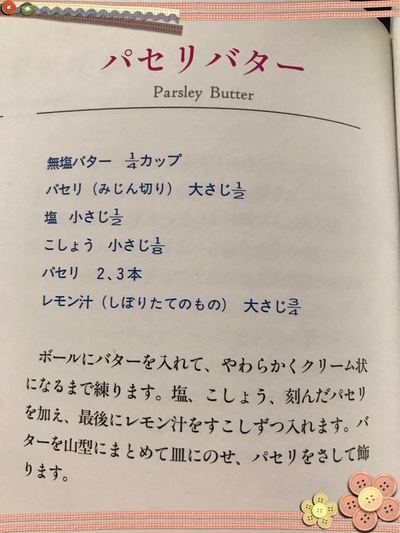 パセリバター
Parsley Butter
無塩バター 1/4カップ
パセリ（みじん切り） 大さじ1/2
塩 小さじ1/2
こしょう 小さじ1/8
パセリ 2、3本
レモン汁（しぼりたてのもの） 大さじ3/4
ボールにバターを入れて、やわらかくクリーム状
になるまで練ります。塩、こしょう、刻んだパセリ
を加え、最後にレモン汁をすこしずつ入れます。バ
ターを山型にまとめて皿にのせ、パセリをさして飾
ります。